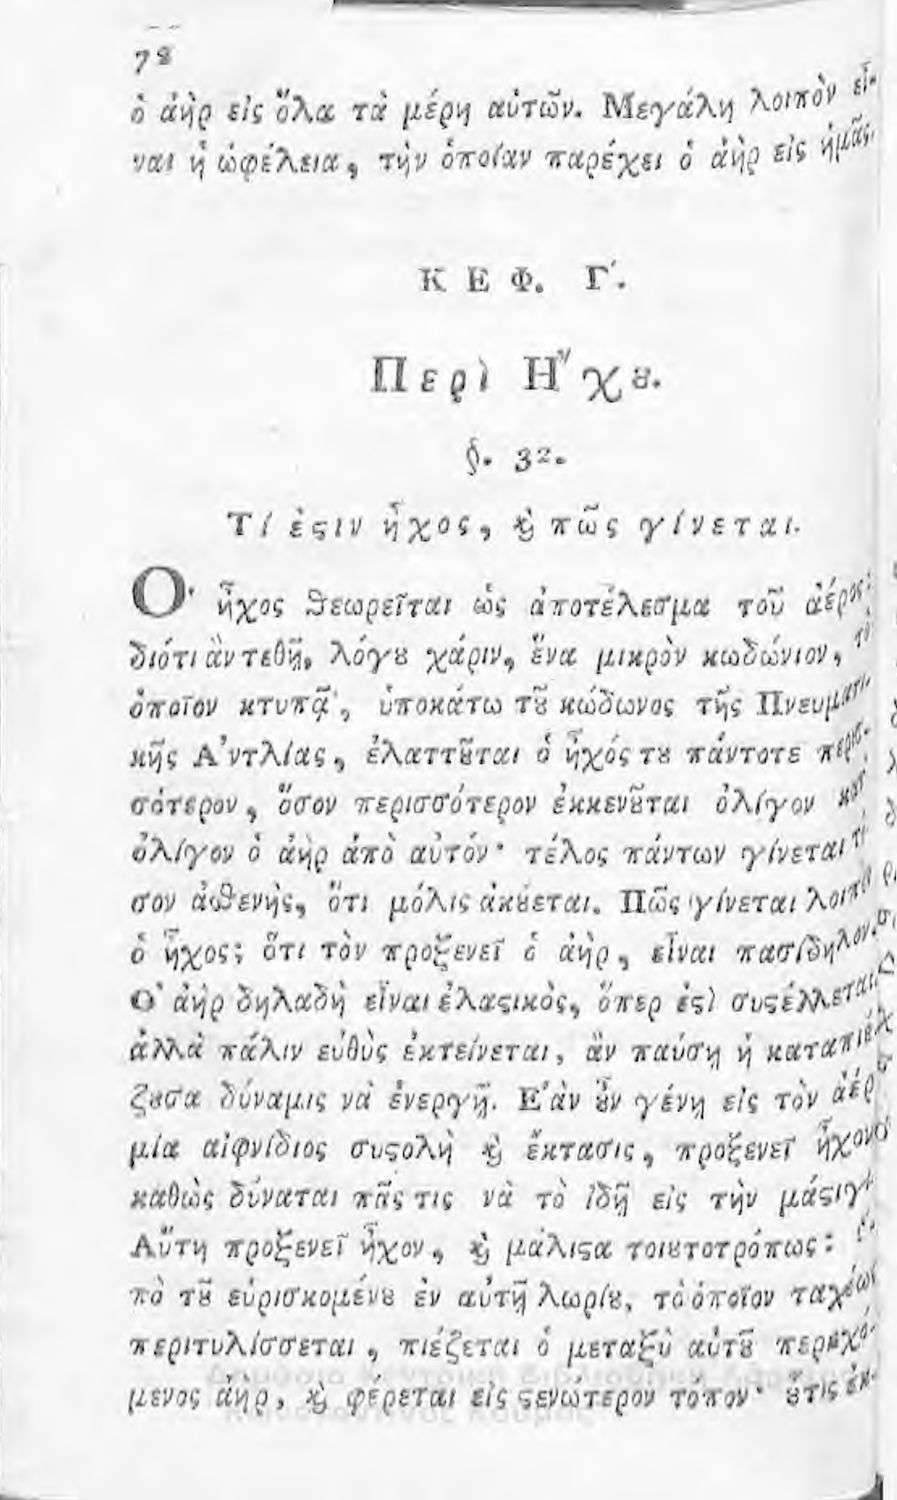 78
ὁ ἀὴρ εἰς ὅλα τὰ μέρη αὐτῶν. Μεγάλη λοιπὸν εἶ-
ναι ἡ ὠφέλεια, τὴν ὁποίαν παρέχει ὁ ἀὴρ εἰς ἡμᾶς.
ΚΕΦ. Γ΄.
Περὶ Ἤχȣ.
§. 32.
Τί ἐϛιν ἦχος, ϗ πῶς γίνεται.
Ὁ ἦχος θεωρεῖται ὡς ἀποτέλεσμα τοῦ ἀέρος·
διότι ἂν τεθῇ, λόγȣ χάριν, ἕνα μικρὸν κωδώνιον, τὸ
ὁποῖον κτυπᾷ, ὑποκάτω τȣ͂ κώδωνος τῆς Πνευματι-
κῆς Ἀντλίας, ἐλαττȣ͂ται ὁ ἦχός τȣ πάντοτε περισ-
σότερον, ὅσον περισσότερον ἐκκενȣ͂ται ὀλίγον κατ'
ὀλίγον ὁ ἀὴρ ἀπὸ αὐτόν· τέλος πάντων γίνεται τό-
σον ἀσθενὴς, ὅτι μόλις ἀκȣ́εται. Πῶς γίνεται λοιπὸν
ὁ ἦχος; ὅτι τὸν προξενεῖ ὁ ἀὴρ, εἶναι πασίδηλον.
Ὁ ἀὴρ δηλαδὴ εἶναι ἐλαϛικὸς, ὅπερ ἐϛὶ συϛέλλεται,
ἀλλὰ πάλιν εὐθὺς ἐκτείνεται, ἂν παύσῃ ἡ καταπιέ-
ζȣσα δύναμις νὰ ἐνεργῇ. Ἐὰν ȣ̓͂ν γένῃ εἰς τὸν ἀέρα
μία αἰφνίδιος συϛολὴ ϗ ἔκτασις, προξενεῖ ἦχον·
καθὼς δύναται πᾶς τις νὰ τὸ ἰδῇ εἰς τὴν μάϛιγα
Αὕτη προξενεῖ ἦχον, ϗ μάλιϛα τοιȣτοτρόπως:
πὸ τȣ͂ εὑρισκομένȣ ἐν αὐτῇ λωρίȣ, τὸ ὁποῖον ταχέως
περιτυλίσσεται, πιέζεται ὁ μεταξὺ αὐτȣ͂ περιεχό-
μενος ἀὴρ, ϗ φέρεται εἰς ϛενώτερον τόπον· ὅϛις ἐκ-